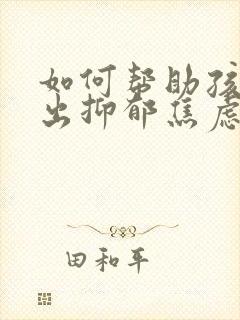 如何帮助孩
出抑郁焦虑
田和平